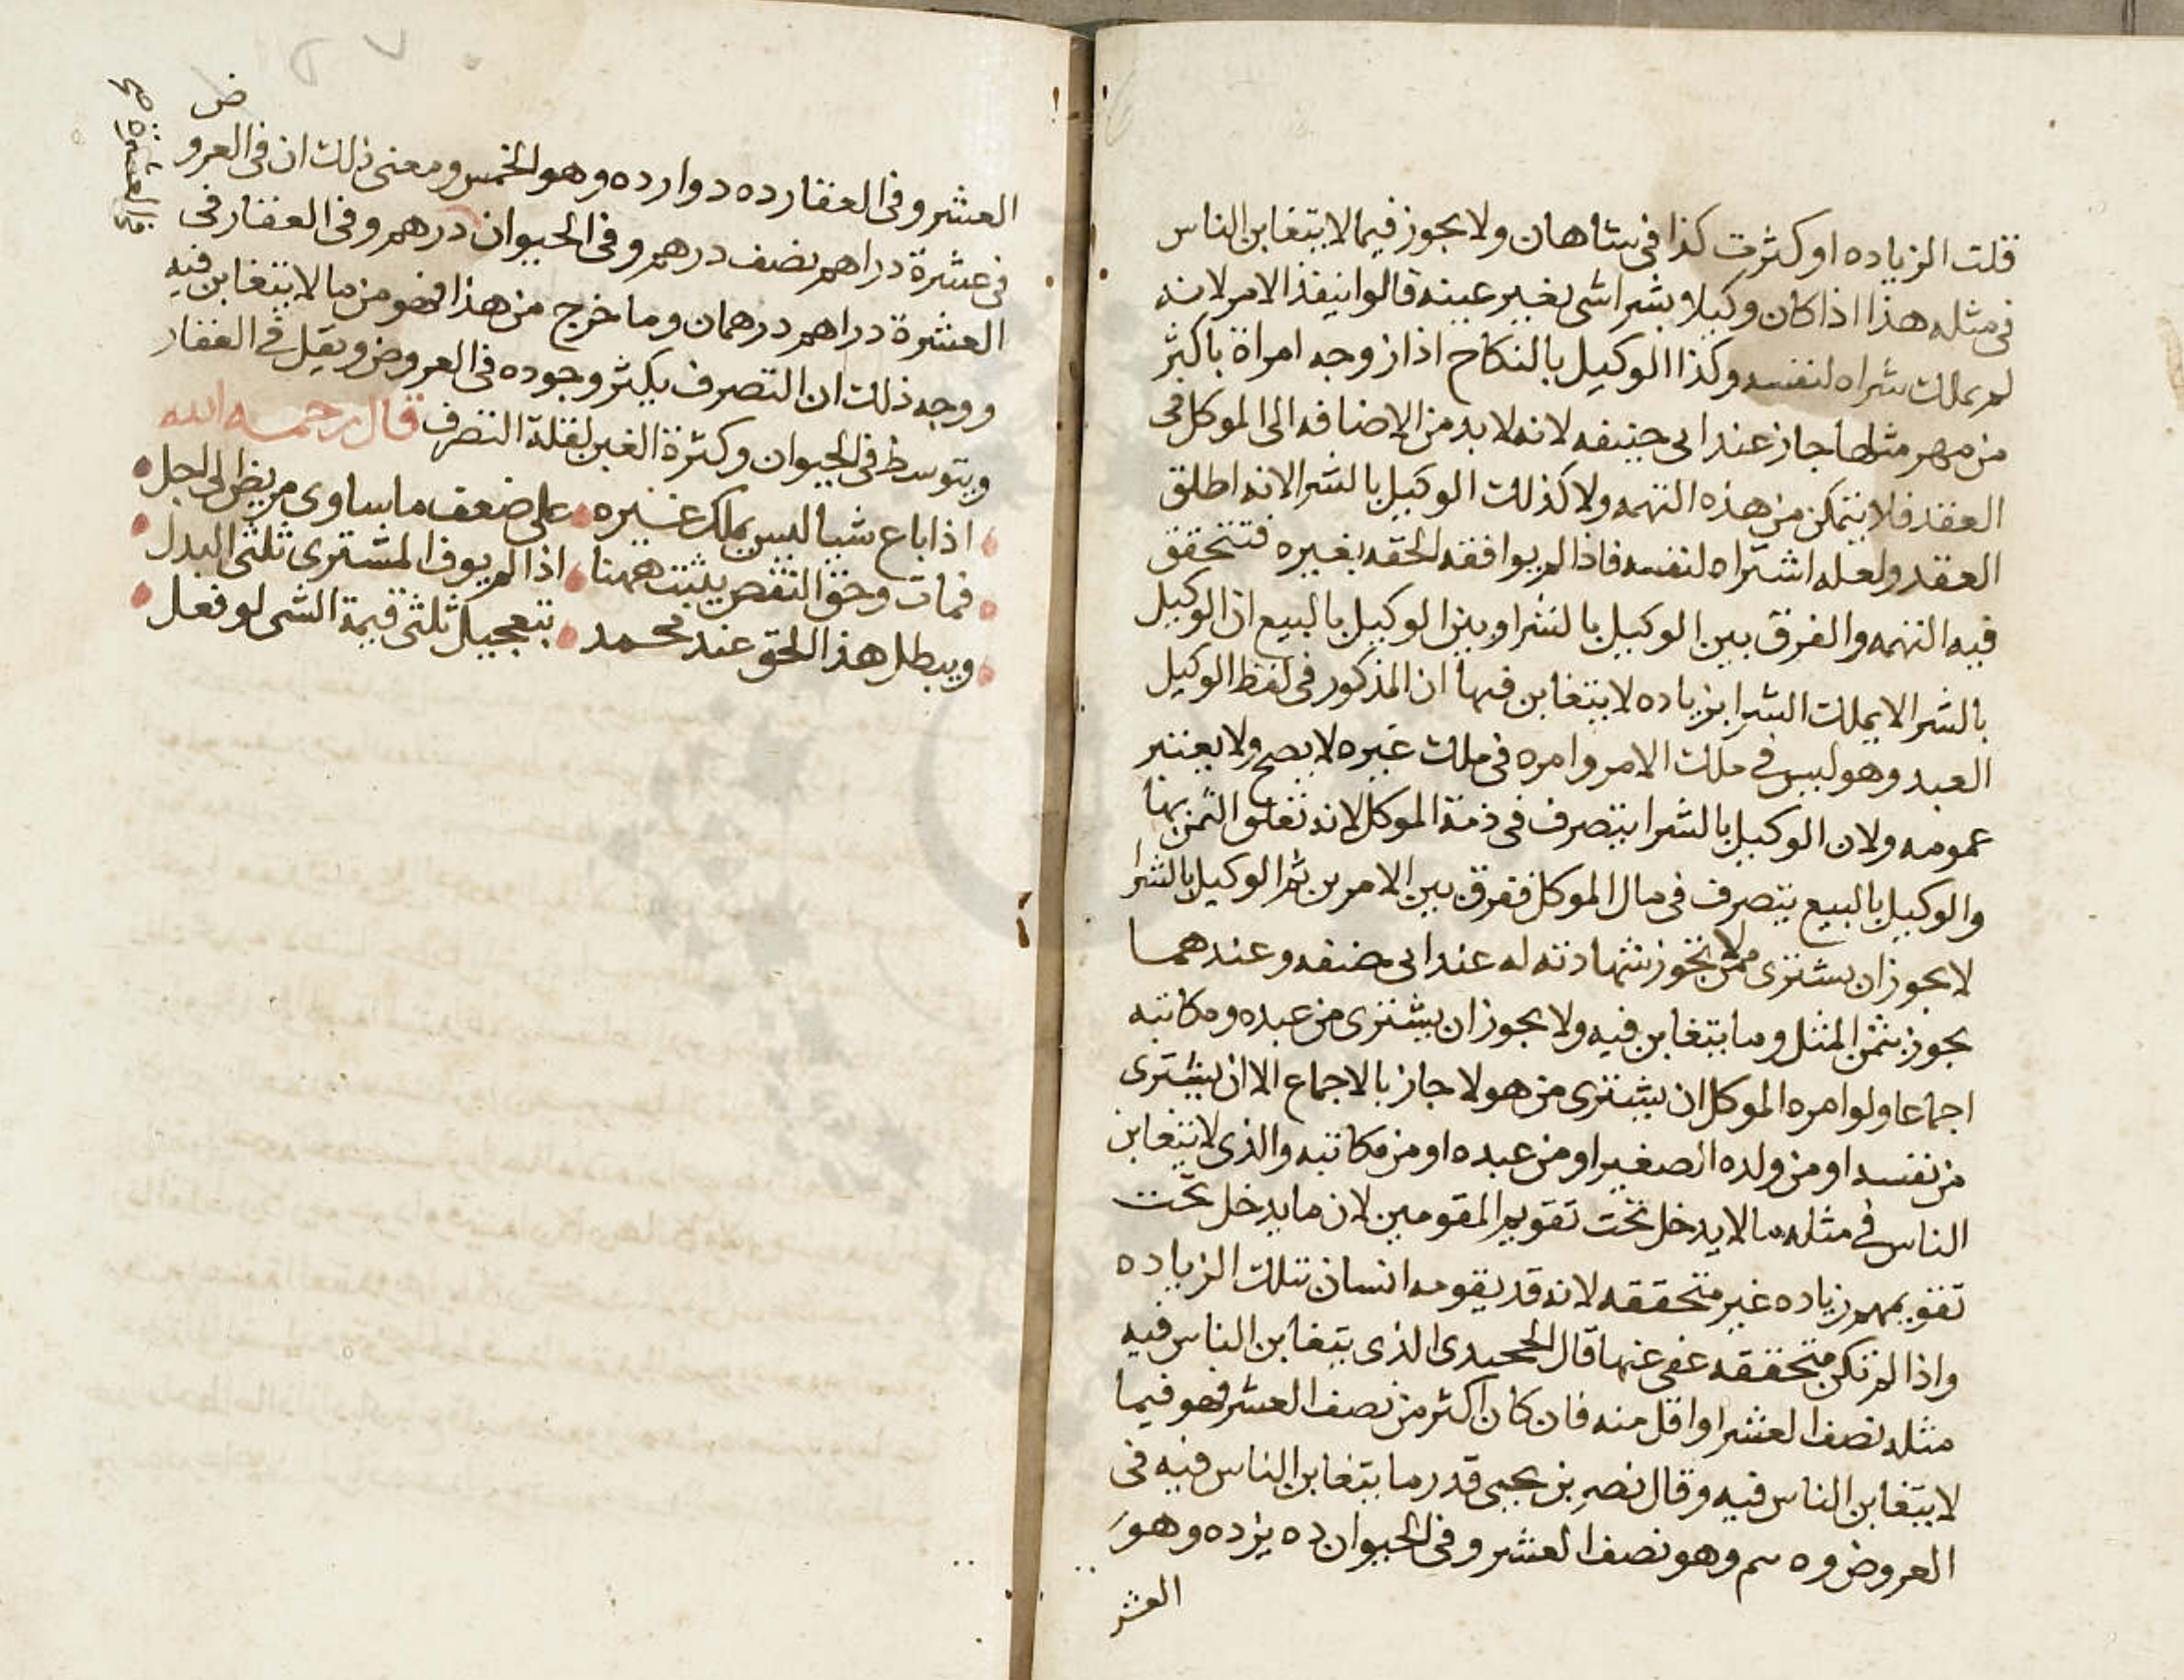 قلت الزياده او كثرت كذا في شاهان ولا يجوز فيما لا يتغابن الناس
في مثله هذا اذا كان وكيلا بشرا شى بغير عينه قالوا ينفذ الامر لانه
لم يملك شراه لنفسه وكذا الوكيل بالنكاح اذا زوجه امراة باكثر
من مهر مثلها جاز عند ابى حنيفه لانه لا بد من الاضافه الى الموكل فى
العقد فلا يتمكن من هذه التهمه ولا كذلك الوكيل بالشرا لانه اطلق
العقد ولعله اشتراه لنفسه فاذا لم يوافقه الحقه بغيره فتتحقق
فيه التهمه والفرق بين الوكيل بالشرا وبين الوكيل بالبيع ان الوكيل
بالشرا لا يملك الشرا بزياده لا يتغابن فيها ان المذكور فى لفظ الوكيل
العبد وهو ليس في ملك الامر وامره فى ملك غيره لا يصح ولا يعتبر
عمومه ولان الوكيل بالشرا يتصرف فى ذمة الموكل لانه تعلق الثمن بها
والوكيل بالبيع يتصرف فى مال الموكل ففرق بين الامرين ثم الوكيل بالشرا
لا يجوز ان يشترى ممن لا تجوز شهادته له عند ابى حنفه وعندهما
يجوز بثمن المثل وما يتغابن فيه ولا يجوز ان يشترى من عبده ومكاتبه
اجماعا ولو امره الموكل ان يشترى من هولا جاز بالاجماع الا ان يشترى
من نفسه او من ولده الصغير او من عبده او من مكاتبه والذى لا يتغابن
الناس في مثله مالا يدخل تحت تقويم المقومين لان ما يدخل تحت
تقويمهم زياده غير متحققه لانه قد يقومه انسان بتلك الزياده
واذا لم تكن متحققه عفى عنها قال الخجندى الذى يتغابن الناس فيه
مثله نصف العشر او اقل منه فان كان اكثر من نصف العشر فهو فيما
لا يتغابن الناس فيه وقال نصر بن يحيى قدر ما يتغابن الناس فيه فى
العروض وه سم وهو نصف العشر وفى الحيوان ده يزده وهو
العشر
العشر وفى العقار ده دوارده وهو الخمس ومعنى ذلك ان فى العروض
فى عشرة دراهم نصف درهم وفى الحيوان درهم وفى العقار فى
العشرة دراهم درهمان وما خرج من هذا فهو من ما لا يتغابن فيه
ووجه ذلك ان التصرف يكثر وجوده فى العروض ويقل في العقار
ويتوسط فى الحيوان وكثرة الغبن لقلة التصرف قال رحمه الله
اذا باع شيا ليس يملك غيره على ضعف ما ساوى مريض الى اجل
فمات وحق النقض يثبت ههنا اذا لم يوف المشترى ثلثى البدل
ويبطل هذا الحق عند محمد بتعجيل ثلثى قيمة الشى لو فعل